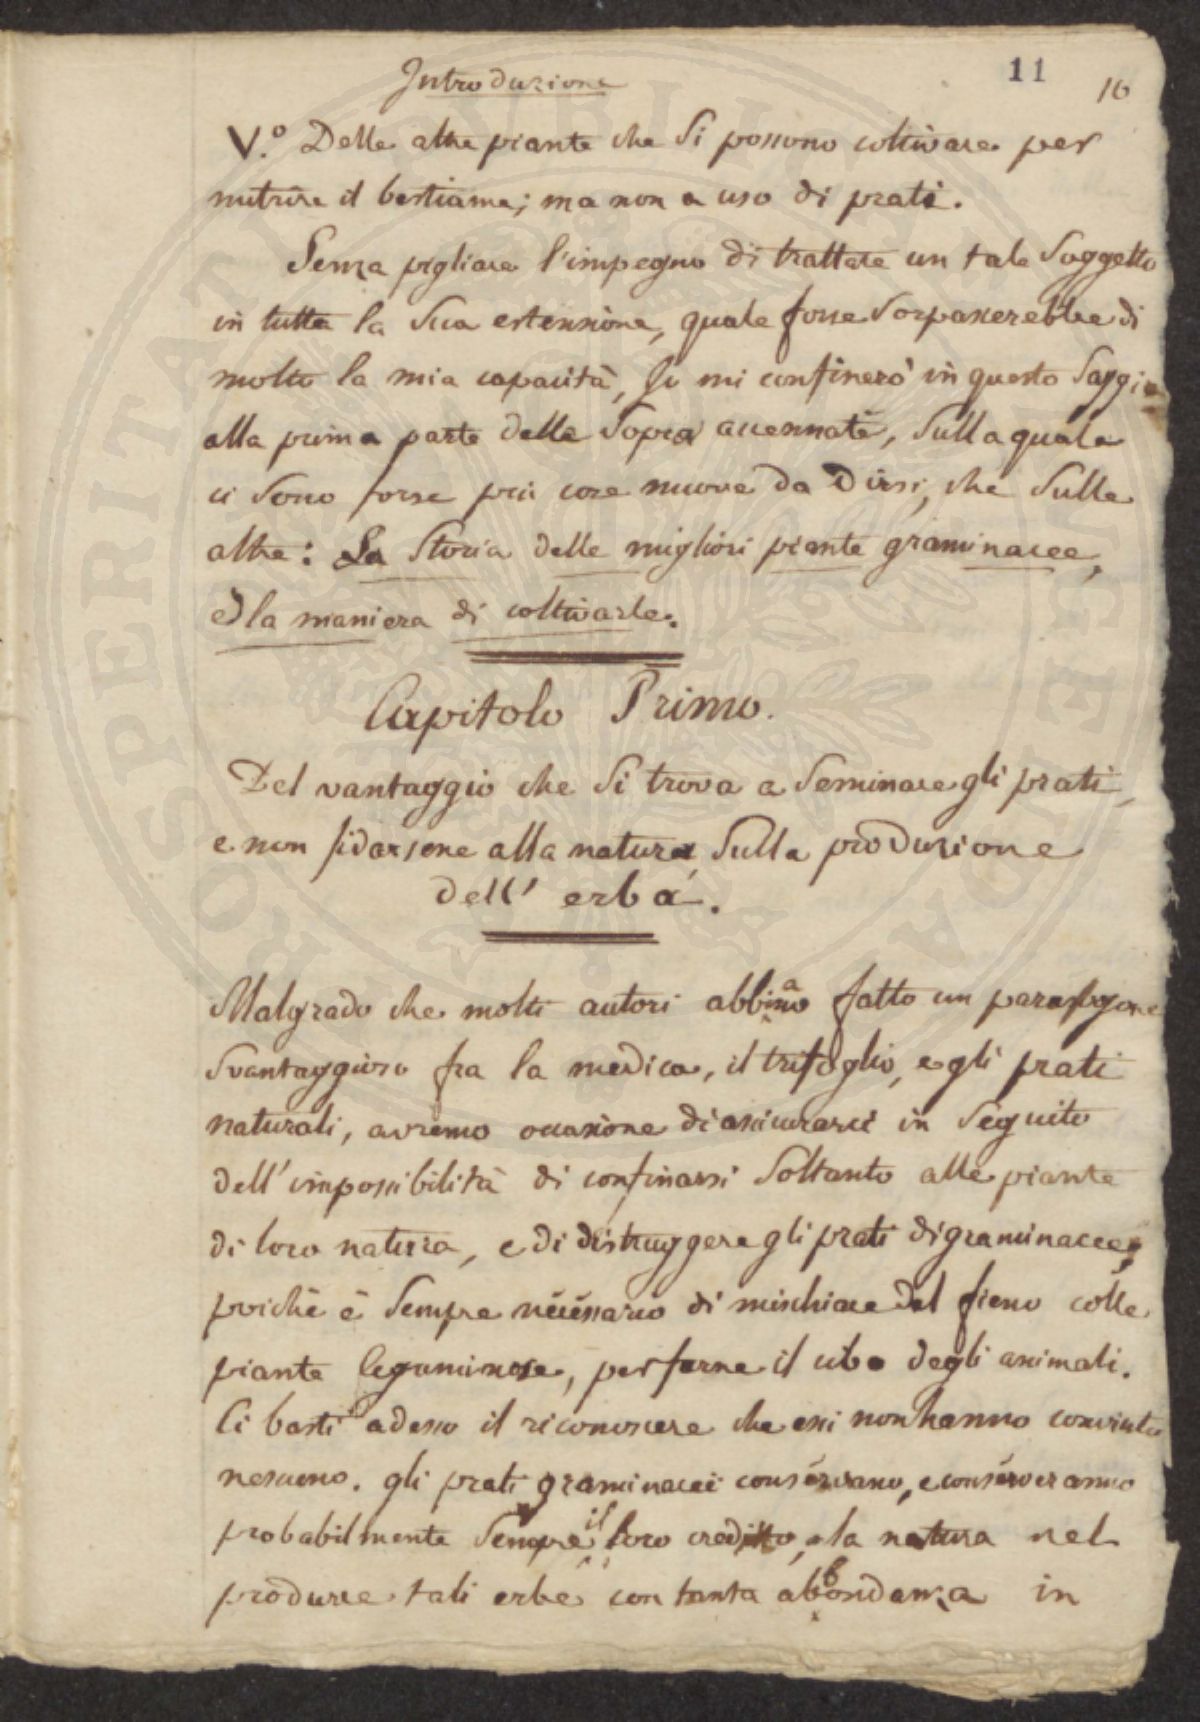 Introduzione
11
10
V.º Delle altre piante che si possono coltivare per
nutrire il bestiame; ma non a uso di prati.
Senza pigliare l'impegno di trattare un tale Soggetto
in tutta la sua estensione, quale forse sorpasserebbe di
molto la mia capacità, Io mi confinerò in questo Saggio
alla prima parte delle sopra accennate, sulla quale
ci sono forse più cose nuove da dirsi, che sulle
altre: La Storia delle migliori piante graminacee,
e la maniera di coltivarle.
Capitolo Primo.
Del vantaggio che si trova a seminare gli prati,
e non fidarsene alla natura, sulla produzione
dell' erba.
Malgrado che molti autori abbiano fatto un paragone
svantaggioso fra la medica, il trifoglio, e gli prati
naturali, avremo occasione di assicurarci in seguito
dell' impossibilità di confinarsi soltanto alle piante
di loro natura, e di distruggere gli prati di graminacee,
poichè è sempre necéssario di mischiare del fieno colle
piante leguminose, per farne il cibo degli animali.
Ci basti adesso il riconoscere che essi non hanno convinto
nessuno. gli prati graminacei consérvano, e consérveranno
probabilmente sempre il loro credito, la natura nel
produrre tali erbe con tanta abbondanza in
PROSPERITATI PUBLICAE AUGENDAE